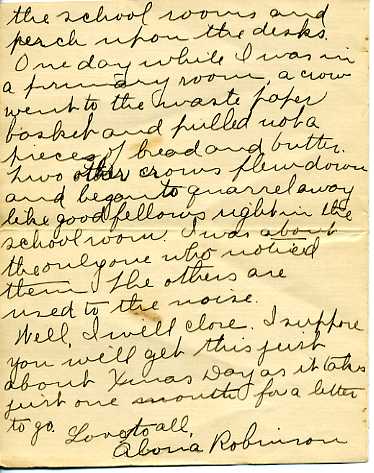 the school rooms and
perch upon the desks.
One day while I was in
a primary room, a crow
went to the waste paper
basket and pulled out a
piece of bread and butter.
Two other crows flew down
and began to quarrel away
like good fellows right in the
school room. I was about
the only one who noticed
them. The others are
used to the noise.
Well, I will close. I suppose
you will get this just
about Xmas Day as it takes
just one month for a letter
to go. Love to all,
Robinson